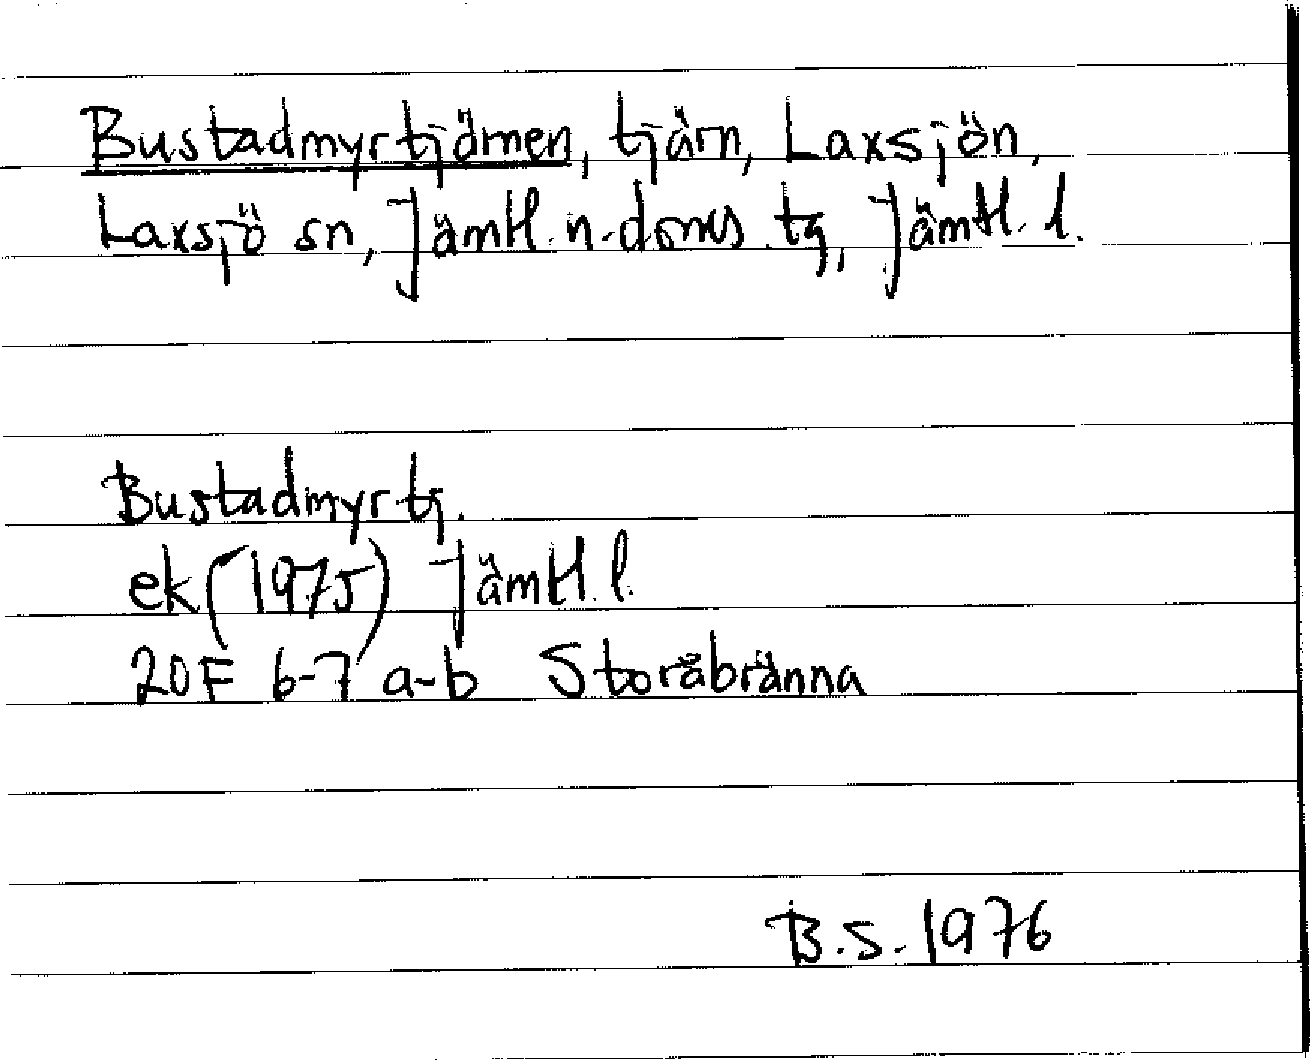 Bustadmyrtjärnen, tjärn, Laxsjön,
Laxsjö sn, Jämtl. n. doms tg, Jämtl. l.
Bustadmyrtj.
ek (1975) Jämtl. l.
20F 6-7 a-b Storåbränna
B.S. 1976